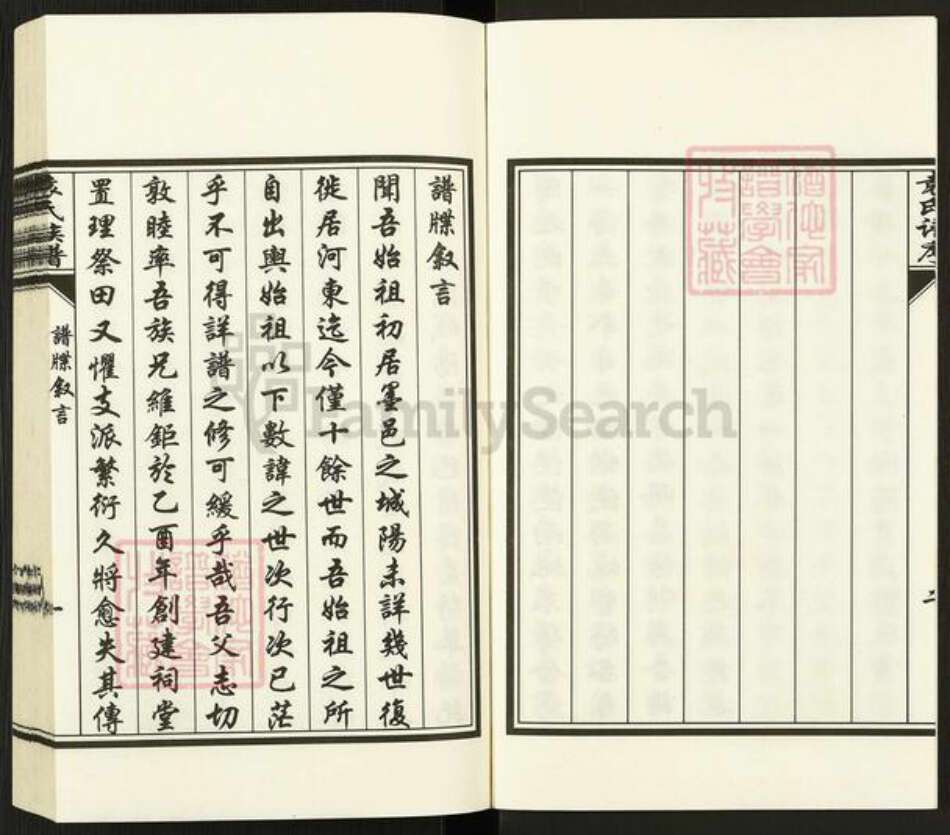 譜牒敘言
聞吾始祖初居墨邑之城陽未詳幾世復
徙居河東迄今僅十餘世而吾始祖之所
自出與始祖以下數諱之世次行次已茫
乎不可得詳譜之修可緩乎哉吾父志切
敦睦率吾族兄維鉅於乙酉年創建祠堂
置理祭田又懼支派繁衍久將愈失其傳
氏族譜
譜牒敘言
一
二
FamilySearch